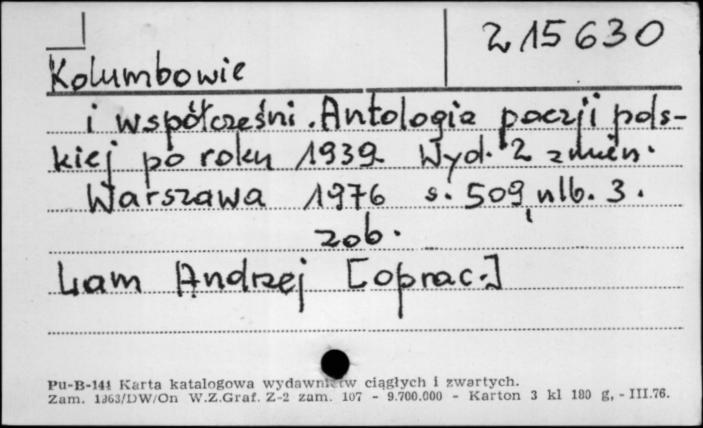 215630
Kolumbowie
i współcześni. Antologia poezji pols-
kiej po roku 1939 Wyd. 2 zmien.
Warszawa 1976 s. 509, nlb. 3.
zob.
Lam Andrzej [oprac.]
Pu-B-141 Karta katalogowa wydawnictw ciągłych i zwartych.
Zam. 1363/DW/On W.Z.Graf. Z-2 zam. 107 - 9.700.000 - Karton 3 kl 180 g, - III.76.